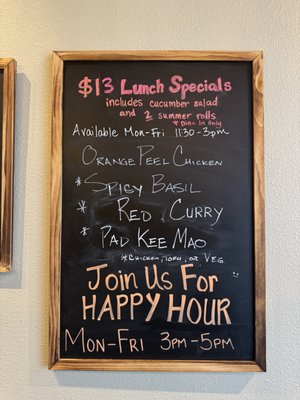 $13 Lunch Specials
includes cucumber salad
and 2 summer rolls
* Dine In Only
Available Mon-Fri 11:30-3pm
Orange Peel Chicken
* Spicy Basil
* Red Curry
* Pad Kee Mao
*Chicken, Tofu, or Veg
Join Us For
Happy Hour
Mon-Fri 3pm-5pm